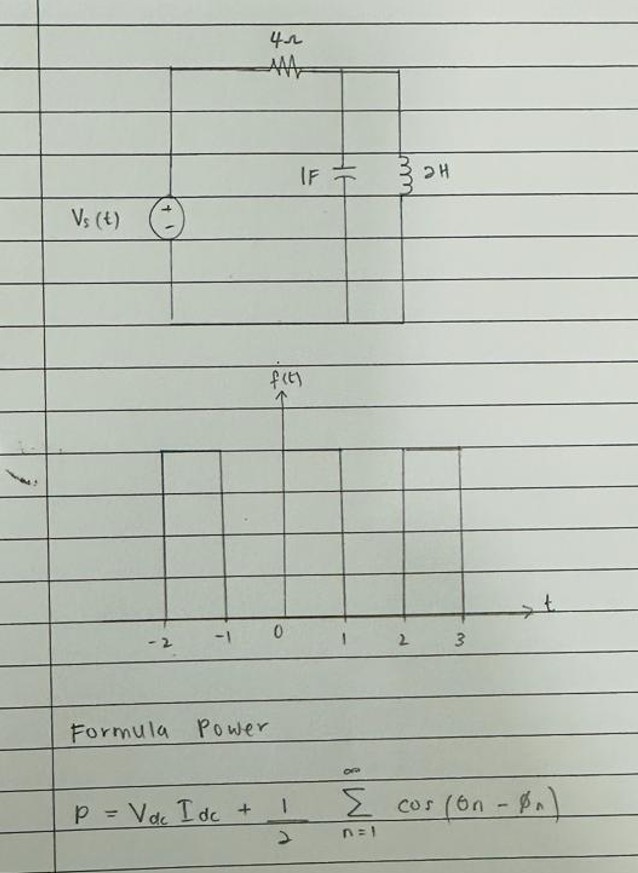 4Ω
1F
2H
Vs(t)
+
-
f(t)
t
-2 -1 0 1 2 3
Formula Power
P = Vdc Idc + 1/2 ∞Σn=1 cos (θn - Øn)